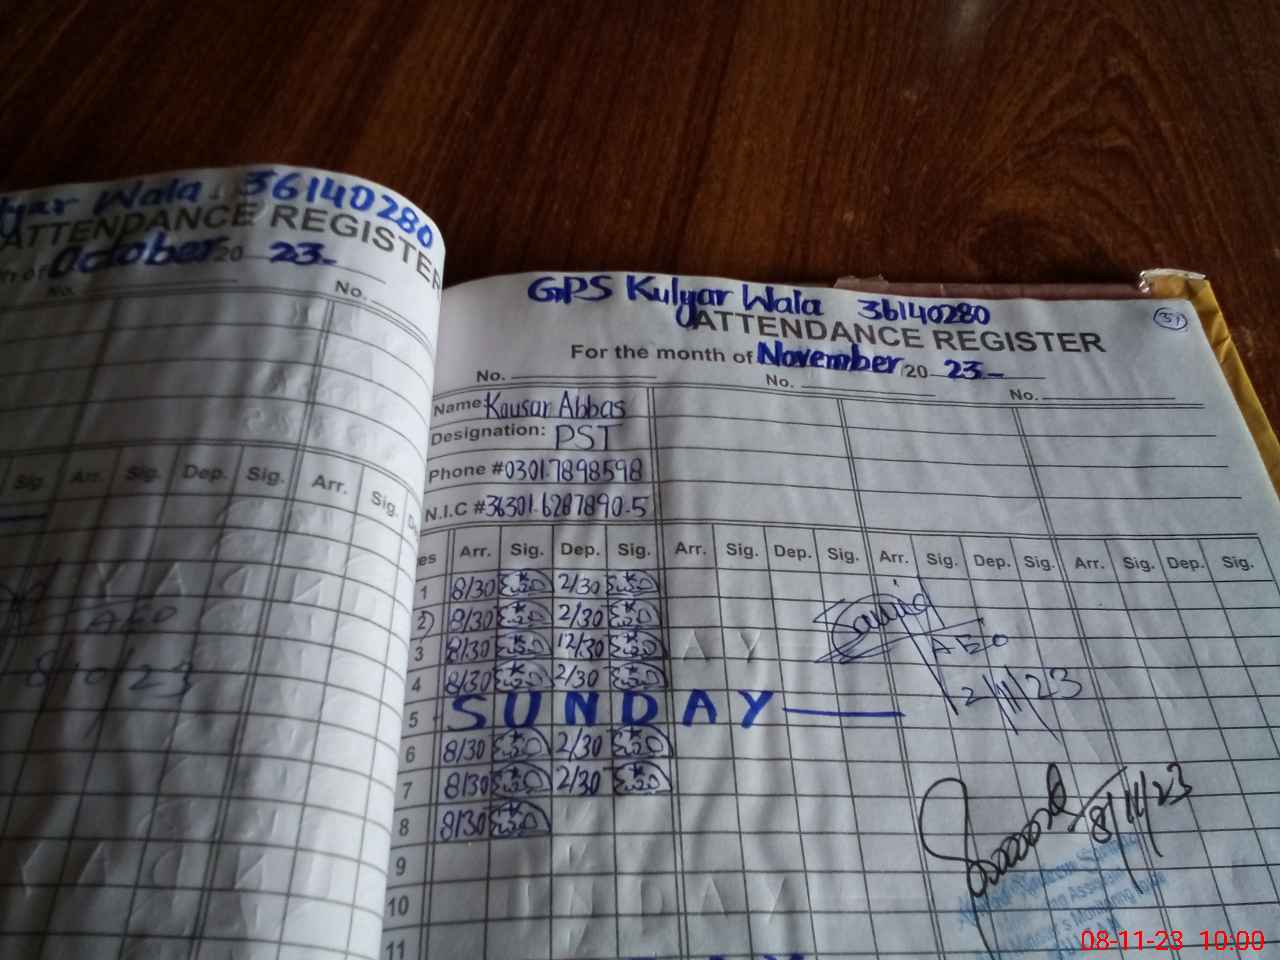 Wala. 36140280
ATTENDANCE REGISTER
October 20 23-
No.
No.
Sig. Arr. Sig. Dep. Sig. Arr. Sig.
AEO
8/10/23
GPS Kulyar Wala 36140280
31
ATTENDANCE REGISTER
For the month of November 20 23-
No. No. No.
Name: Kausar Abbas
Designation: PST
Phone # 0301.7898598
N.I.C # 36301.6287890.5
es Arr. Sig. Dep. Sig. Arr. Sig. Dep. Sig. Arr. Sig. Dep. Sig. Arr. Sig. Dep. Sig.
1 8/30 2/30
2 8/30 2/30
3 8/30 12/30
AEO
4 8/30 2/30
2/11/23
5 SUNDAY
6 8/30 2/30
7 8/30 2/30
8/11/23
8 8/30
9
10
11
08-11-23 10:00